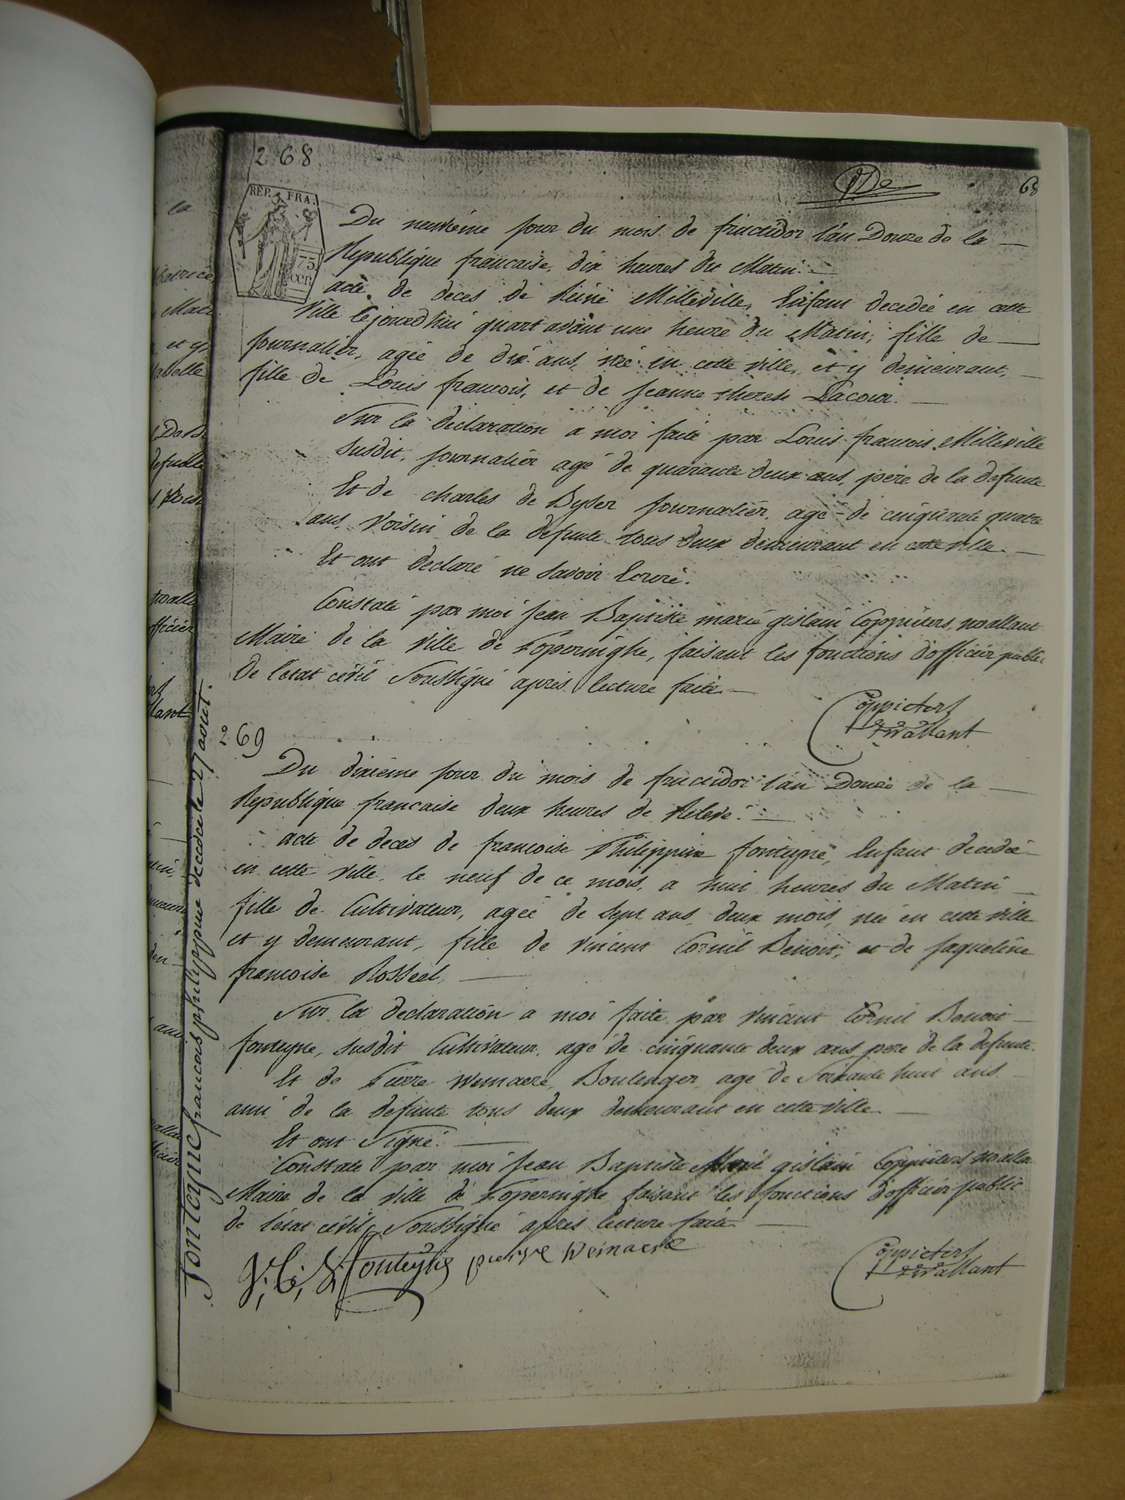 268
68
REP. FRA.
75
cen
Du neuvième jour du mois de fructidor l'an Douze de la
République francaise, dix heures du Matin.
acte de deces de Reine Milleville, Enfant decedée en cette
Ville le jourd'hui quart avant une heure du Matin, fille de
Journalier, agée de dix ans, née en cette ville, et y demeurant,
fille de Louis francois, et de Jeanne therese Lacour.
Sur la declaration a moi faite par Louis francois Milleville
susdit, journalier agé de quarante deux ans, père de la defunte
Et de charles de Byser journalier, agé de cinquante quatre
ans, Voisin de la defunte tous deux demeurant en cette ville.
Et ont declaré ne savoir Ecrire.
Constaté par moi Jean Baptiste marie gislain Coppieters, wallant
Maire de la ville de Poperinghe, faisant les fonctions d'officier public
de l'état civil Soussigné après lecture faite.
Coppieters
wallant
269
Du dixième jour du mois de fructidor l'an Douze de la
République francaise deux heures de Relevé.
acte de deces de francoise Philippine fonteyne, Enfant decedée
en cette ville le neuf de ce mois, a huit heures du Matin
fille de Cultivateur, agée de sept ans deux mois, née en cette ville
et y demeurant, fille de vincent Cornil Benoit, et de Jaqueline
francoise Rosseel.
Sur la declaration a moi faite par vincent Cornil Benoit
fonteyne, susdit Cultivateur, agé de cinquante deux ans père de la defunte.
Et de Pierre Weinaere, Boulenger agé de soixante huit ans
ami de la defunte tous deux demeurant en cette ville.
Et ont Signé.
Constaté par moi Jean Baptiste Marie gislain Coppieters, walla
Maire de la Ville de Poperinghe faisant les fonctions d'officier public
de l'état civil, Soussigné après lecture faite.
V: C: B: fonteyne pierre weinaere
Coppieters
wallant
fonteyne francois philippine decedée le 27 aout.